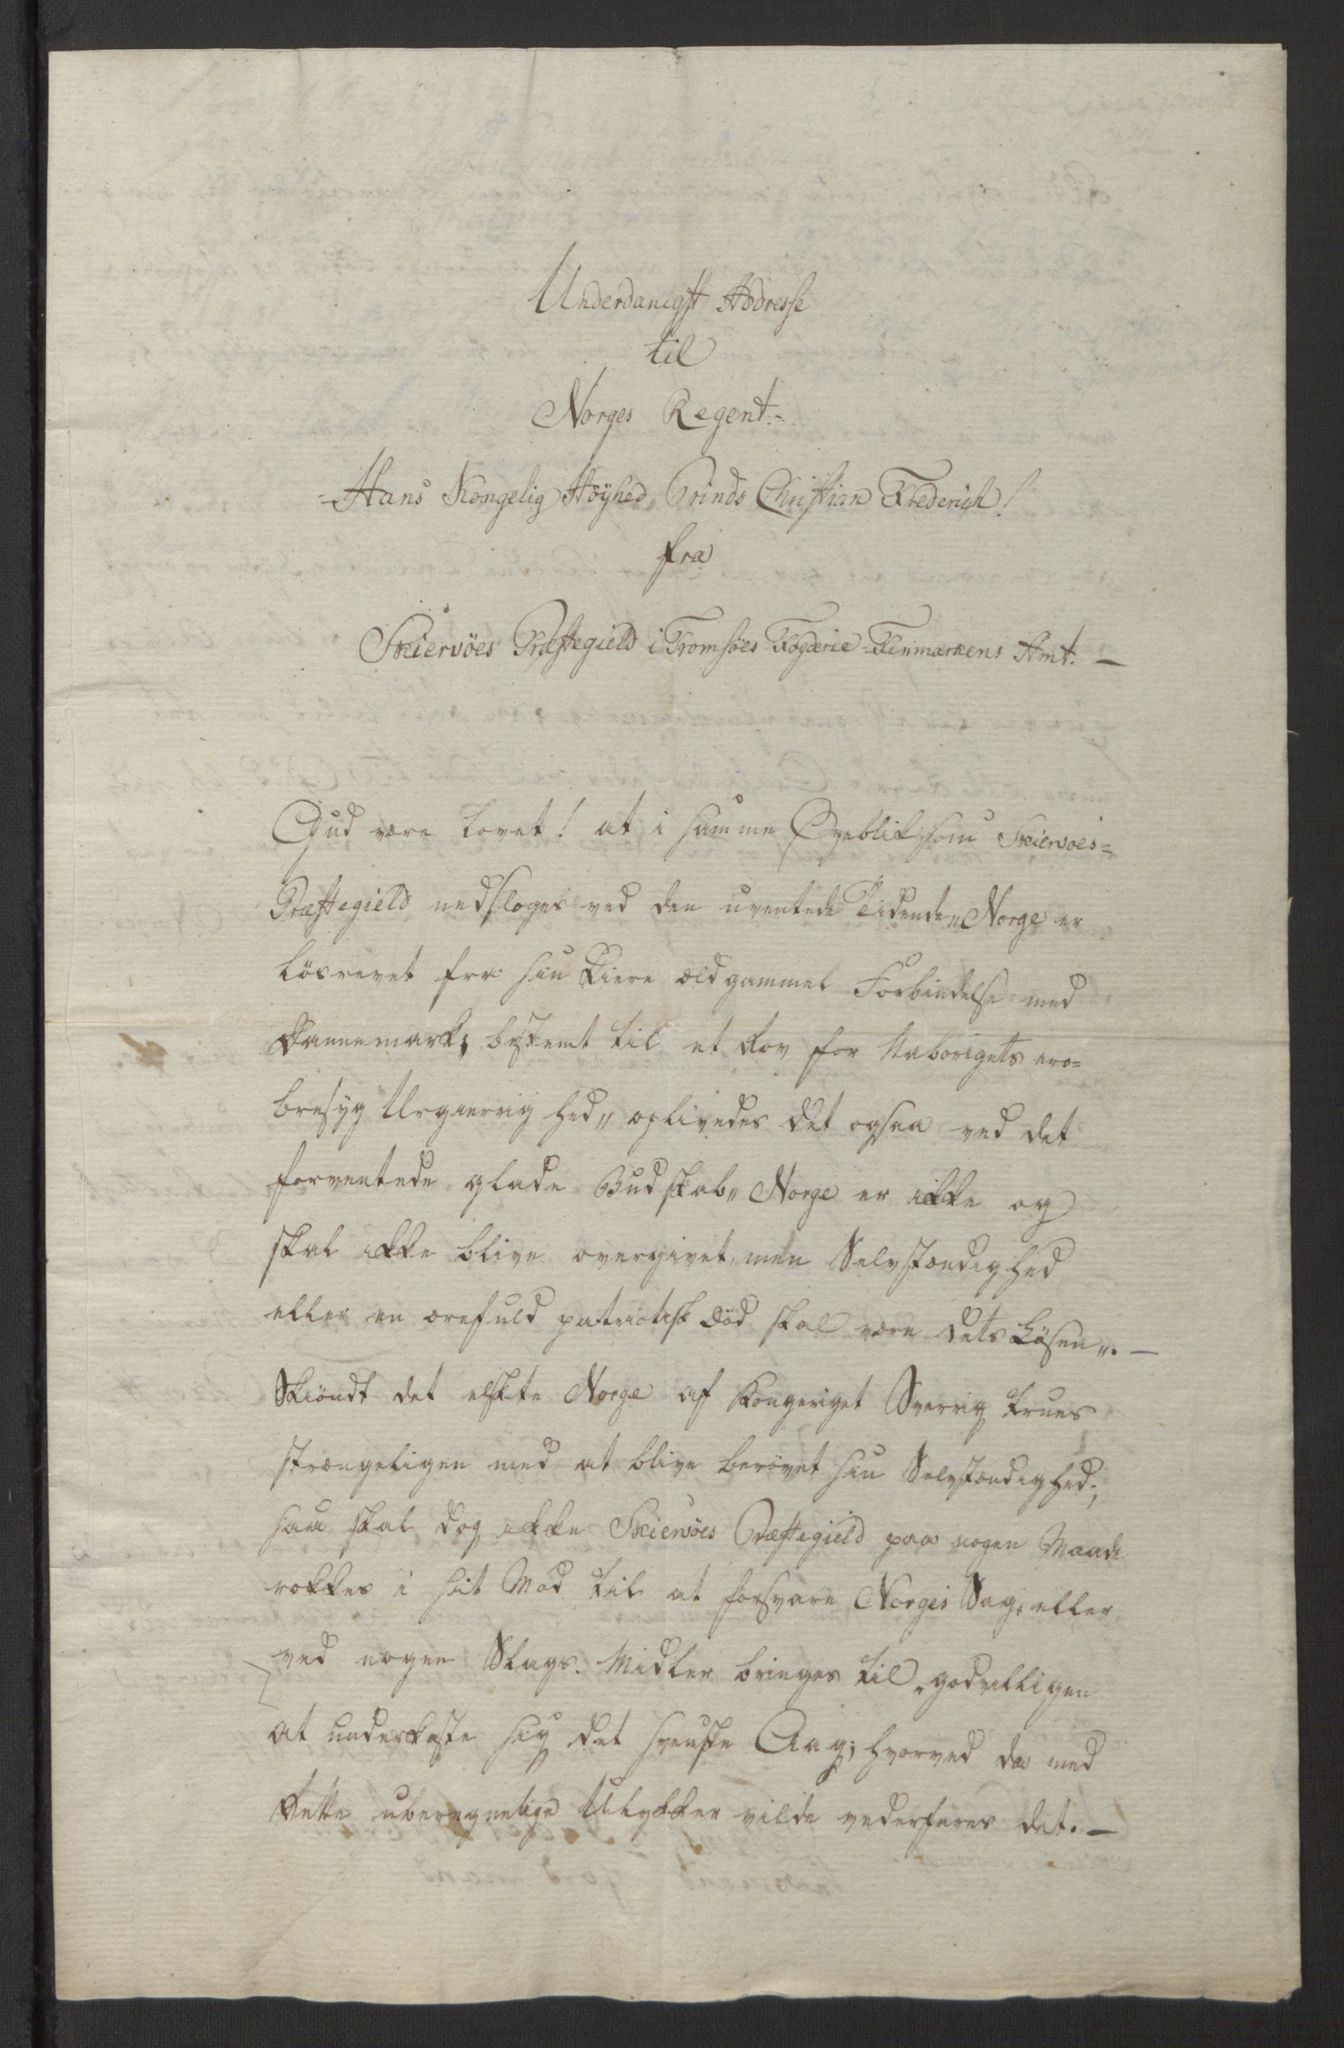 Underdanigst Addresse
til
Norges Regent.-
-Hans Kongelig Höyhed Prinds Christian Frederich!
fra
Skiervöes Præstegield i Tromsöes Fogderie Finmarkens Amt. —
Gud være lovet! at i samme Øyeblik, som Skiervöes=
Præstegield nedsloges ved den uventede Tidende „Norge er
lösrevet fra sin kiere ældgammel Forbindelse med
Dannemark, bestemt til et Rov for Naborigets ero=
bresyg Ærgierrighed„ oplivedes det ogsaa ved det
forventede glade Budskab„ Norge er ikke og
skal ikke blive overgivet, men Selvstændighed
eller en ærefuld patriotisk Död skal være dets Lösen„. —
Skiöndt det elskte Norge af Kongeriget Sverrig trues
strængeligen med at blive berövet sin Selvstændighed;
saa skal dog ikke Skiervöes Præstegield paa nogen Maade
rokkes i sit Mod til at forsvare Norges Sag, eller
ved nogen Slags Midler bringes til godvilligen
at underkaste sig det svenske Aag; hvorved da med
dette uberegnelige Ulykker vilde vederfares det. —